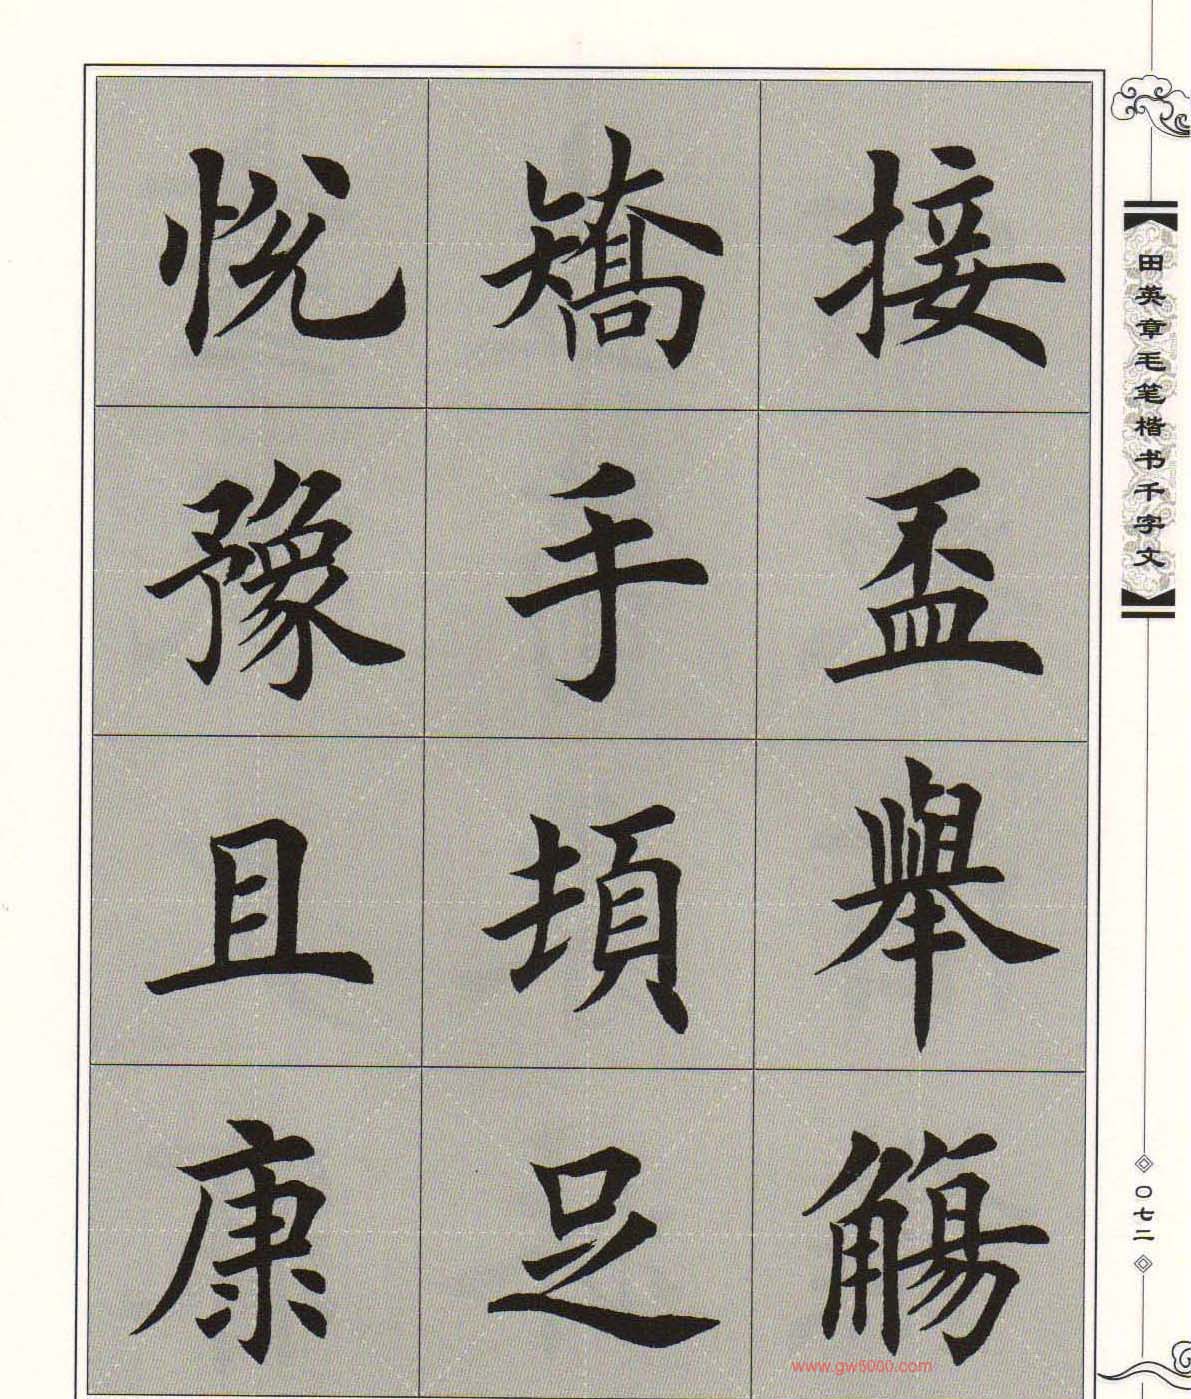 接盃舉觴
矯手頓足
悅豫且康
田英章毛笔楷书千字文
〇七二
www.gw5000.com